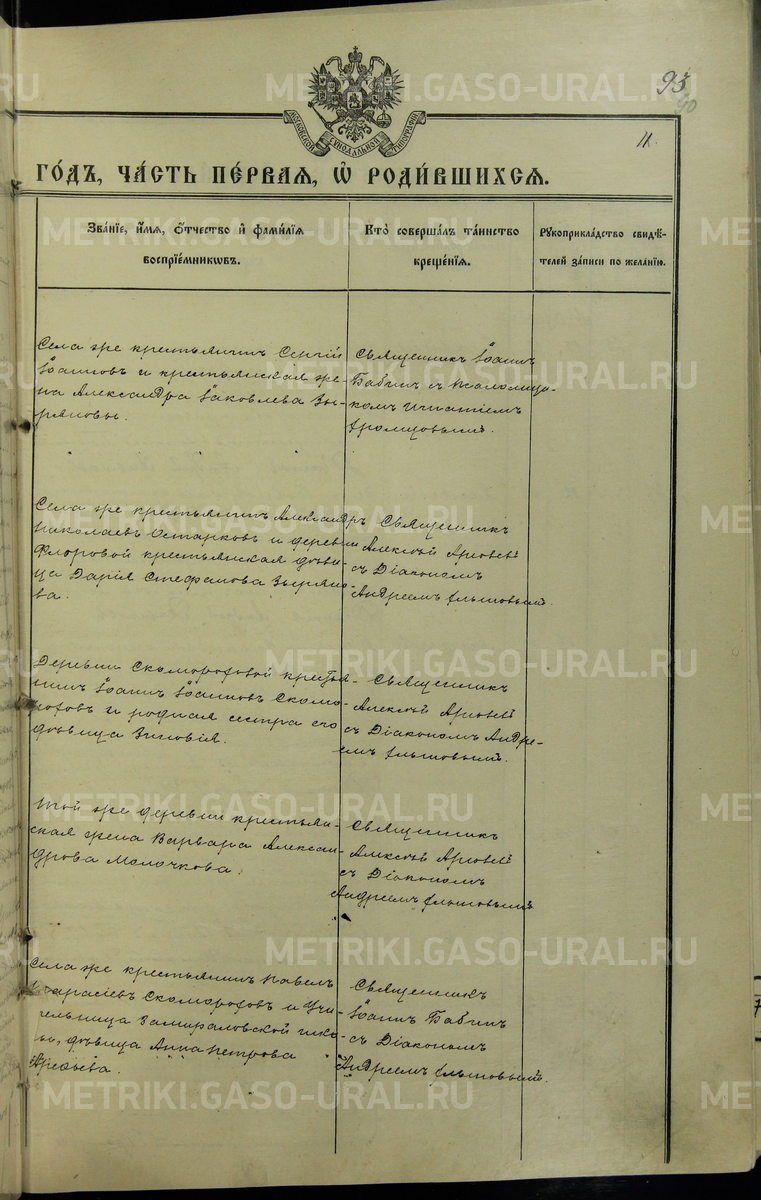 93
90
11.
МОСКОВСКОЙ СѴНОДАЛЬНОЙ ТИПОГРАФІИ
ГОДЪ, ЧАСТЬ ПЕРВАЯ, Ѡ РОДИВШИХСЯ.
Званіе, имя, отчество и фамилія
воспріемниковъ.
Кто совершалъ таинство
крещенія.
Рукоприкладство свидѣ-
телей записи по желанію.
Села же крестьянинъ Сергій
Іоанновъ и крестьянская же-
на Александра Іаковлева Зы-
ряновы.
Священникъ Іоаннъ
Бабинъ съ псаломщи-
комъ Игнатіемъ
Села же крестьянинъ Александръ
Николаевъ Остарковъ и деревни
Флоровой крестьянская дѣви-
ца Дарія Стефанова Зыряно-
ва.
Священникъ
Алексій
съ Діакономъ
Андреемъ
Деревни Скомороховой крестья-
нинъ Іоаннъ Іоанновъ Скомо-
роховъ и родная сестра его
дѣвица Зиновія.
Священникъ
Алексій
съ Діакономъ Андре-
емъ
Той же деревни крестьян-
ская жена Варвара Алексан-
дрова Молочкова.
Священникъ
Алексій
съ Діакономъ
Андреемъ
Села же крестьянинъ Павелъ
Тарасіевъ Скомороховъ и учи-
тельница Замираловской шко-
лы, дѣвица Анна Петрова
Арефьева.
Священникъ
Іоаннъ Бабинъ
съ Діакономъ
Андреемъ
METRIKI.GASO-URAL.RU